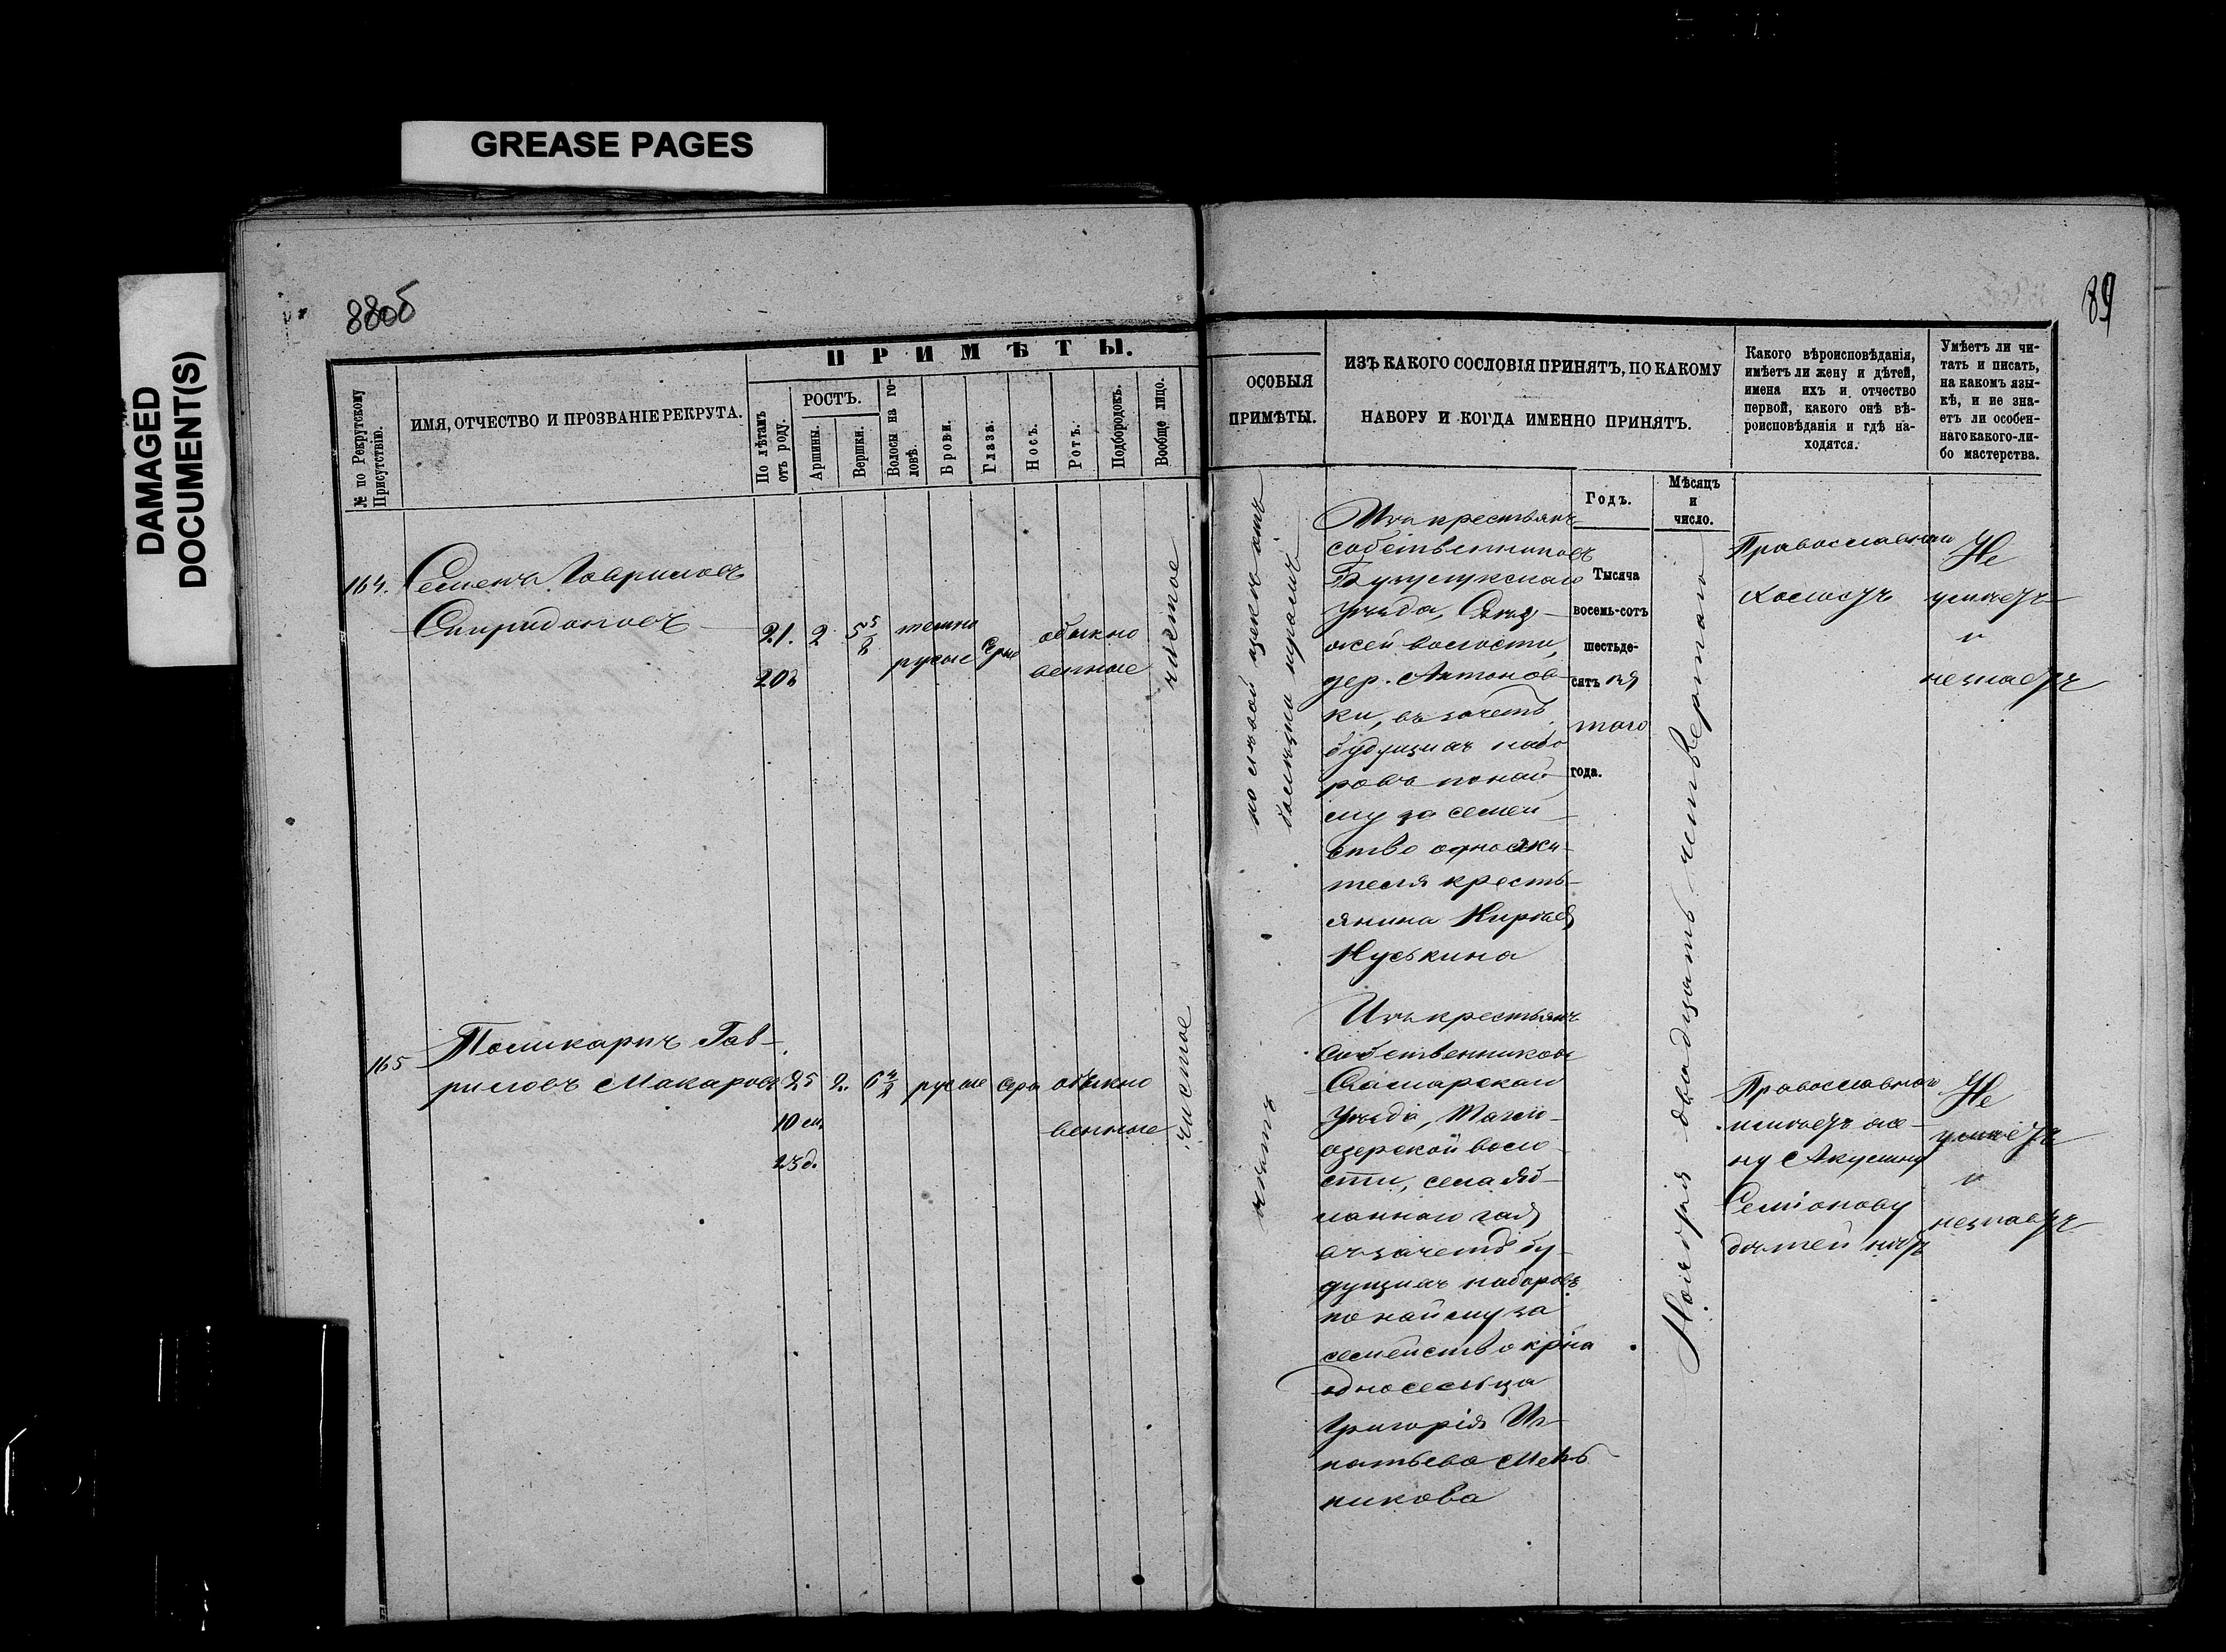 GREASE PAGES
DAMAGED
DOCUMENT(S)
88об
89
ПРИМѢТЫ.
№ по Рекрутскому
Присутствію.
ИМЯ, ОТЧЕСТВО И ПРОЗВАНІЕ РЕКРУТА.
По лѣтамъ
отъ роду.
РОСТЪ.
Аршины.
Вершки.
Волосы на го-
ловѣ.
Брови.
Глаза.
Носъ.
Ротъ.
Подбородокъ.
Вообще лицо.
164.
Семенъ Гавриловъ
Спиридоновъ
21.
20д
2
5 5/8
темно
русые
Серые
обыкно
венные
чистое
165
Поликарпъ Гав-
риловъ Макаровъ
25
10 м.
23д.
2.
6 4/8
русые
серы
обыкно
венные
чистое
ОСОБЫЯ
ПРИМѢТЫ.
ИЗЪ КАКОГО СОСЛОВІЯ ПРИНЯТЪ, ПО КАКОМУ
НАБОРУ И КОГДА ИМЕННО ПРИНЯТЪ.
Какого вѣроисповѣданія,
имѣетъ ли жену и дѣтей,
имена ихъ и отчество
первой, какого онѣ вѣ-
роисповѣданія и гдѣ на-
ходятся.
Умѣетъ ли чи-
тать и писать,
на какомъ язы-
кѣ, и не зна-
етъ ли особен-
наго какого-ли-
бо мастерства.
Годъ.
Мѣсяцъ
и
число.
на лѣвой щекѣ
Изъ крестьянъ
собственниковъ
Бузулукскаго
уѣзда,
волости,
дер. Антонов-
ки, въ зачетъ
будущихъ набо
ровъ по най-
му за семей-
ство одножи-
теля кресть-
янина
Кузькина
Тысяча
восемь-сотъ
шестьде-
сятъ пя
таго
года.
Ноября двадцать четвертаго
Православнаго
холостъ
Не
умѣетъ
и
незнаетъ
нѣтъ
Изъ крестьянъ
собственниковъ
Самарскаго
уѣзда,
озерской воло-
сти, села Яб-
лоннаго
въ зачетъ бу-
дущихъ наборовъ
по найму за
семейство кр-на
односельца
Григорія Иг-
натьева Мель
никова
Православнаго
имѣетъ же-
ну Акулину
Семіонову
дѣтей нѣтъ
Не
умѣетъ
и
незнаетъ